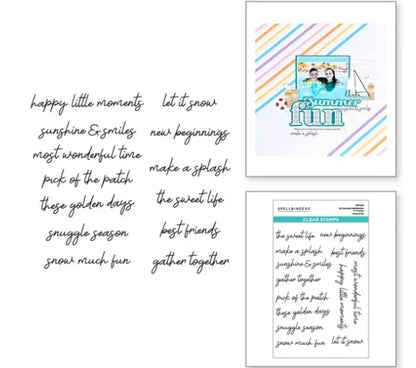 happy little moments
sunshine & smiles
most wonderful time
pick of the patch
these golden days
snuggle season
snow much fun
let it snow
new beginnings
make a splash
the sweet life
best friends
gather together
Summer
fun
make a splash
SPELLBINDERS
CLEAR STAMPS
the sweet life
new beginnings
make a splash
best friends
sunshine & smiles
gather together
pick of the patch
these golden days
snuggle season
snow much fun
let it snow
happy little moments
most wonderful time